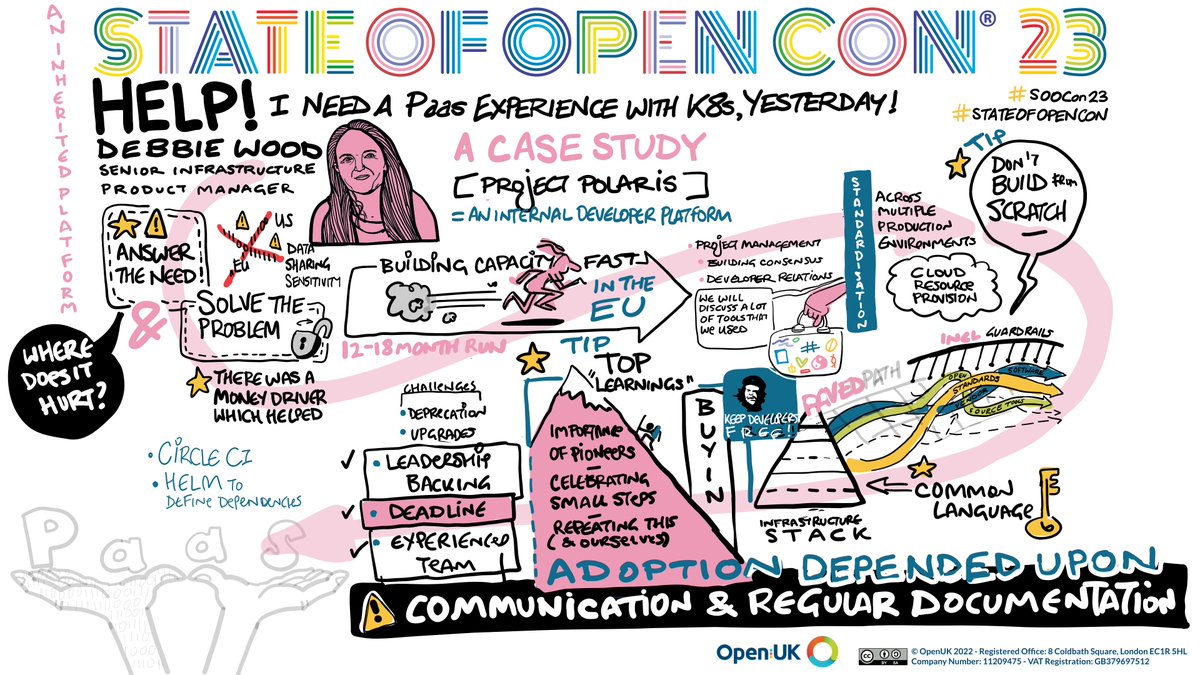 STATE OF OPEN CON® 23
AN INHERITED PLATFORM
HELP! I NEED A PaaS EXPERIENCE WITH K8s, YESTERDAY!
#SOOCon23
#STATEOFOPENCON
DEBBIE WOOD
SENIOR INFRASTRUCTURE
PRODUCT MANAGER
A CASE STUDY
[PROJECT POLARIS]
= AN INTERNAL DEVELOPER PLATFORM
ANSWER
THE NEED
&
SOLVE THE
PROBLEM
US
EU
DATA
SHARING
SENSITIVITY
WHERE
DOES IT
HURT?
THERE WAS A
MONEY DRIVER
WHICH HELPED
BUILDING CAPACITY FAST
IN THE
EU
12-18 MONTH RUN
• PROJECT MANAGEMENT
• BUILDING CONSENSUS
• DEVELOPER RELATIONS
WE WILL
DISCUSS A LOT
OF TOOLS THAT
WE USED
STANDARDISATION
ACROSS
MULTIPLE
PRODUCTION
ENVIRONMENTS
CLOUD
RESOURCE
PROVISION
TIP
DON'T
BUILD FROM
SCRATCH
INCL GUARDRAILS
PAVED PATH
OPEN
STANDARDS
SOFTWARE
SOURCE TOOLS
• CIRCLE CI
• HELM TO
DEFINE DEPENDENCIES
PaaS
CHALLENGES
• DEPRECATION
• UPGRADES
• LEADERSHIP
BACKING
• DEADLINE
• EXPERIENCED
TEAM
TIP
TOP
"LEARNINGS"
IMPORTANCE
OF PIONEERS
—
CELEBRATING
SMALL STEPS
—
REPEATING THIS
(& OURSELVES)
BUY IN
KEEP DEVELOPERS
FREE!!
INFRASTRUCTURE
STACK
COMMON
LANGUAGE
ADOPTION DEPENDED UPON
COMMUNICATION & REGULAR DOCUMENTATION
Open:UK
CC BY SA
© OpenUK 2022 - Registered Office: 8 Coldbath Square, London EC1R 5HL
Company Number: 11209475 - VAT Registration: GB379697512